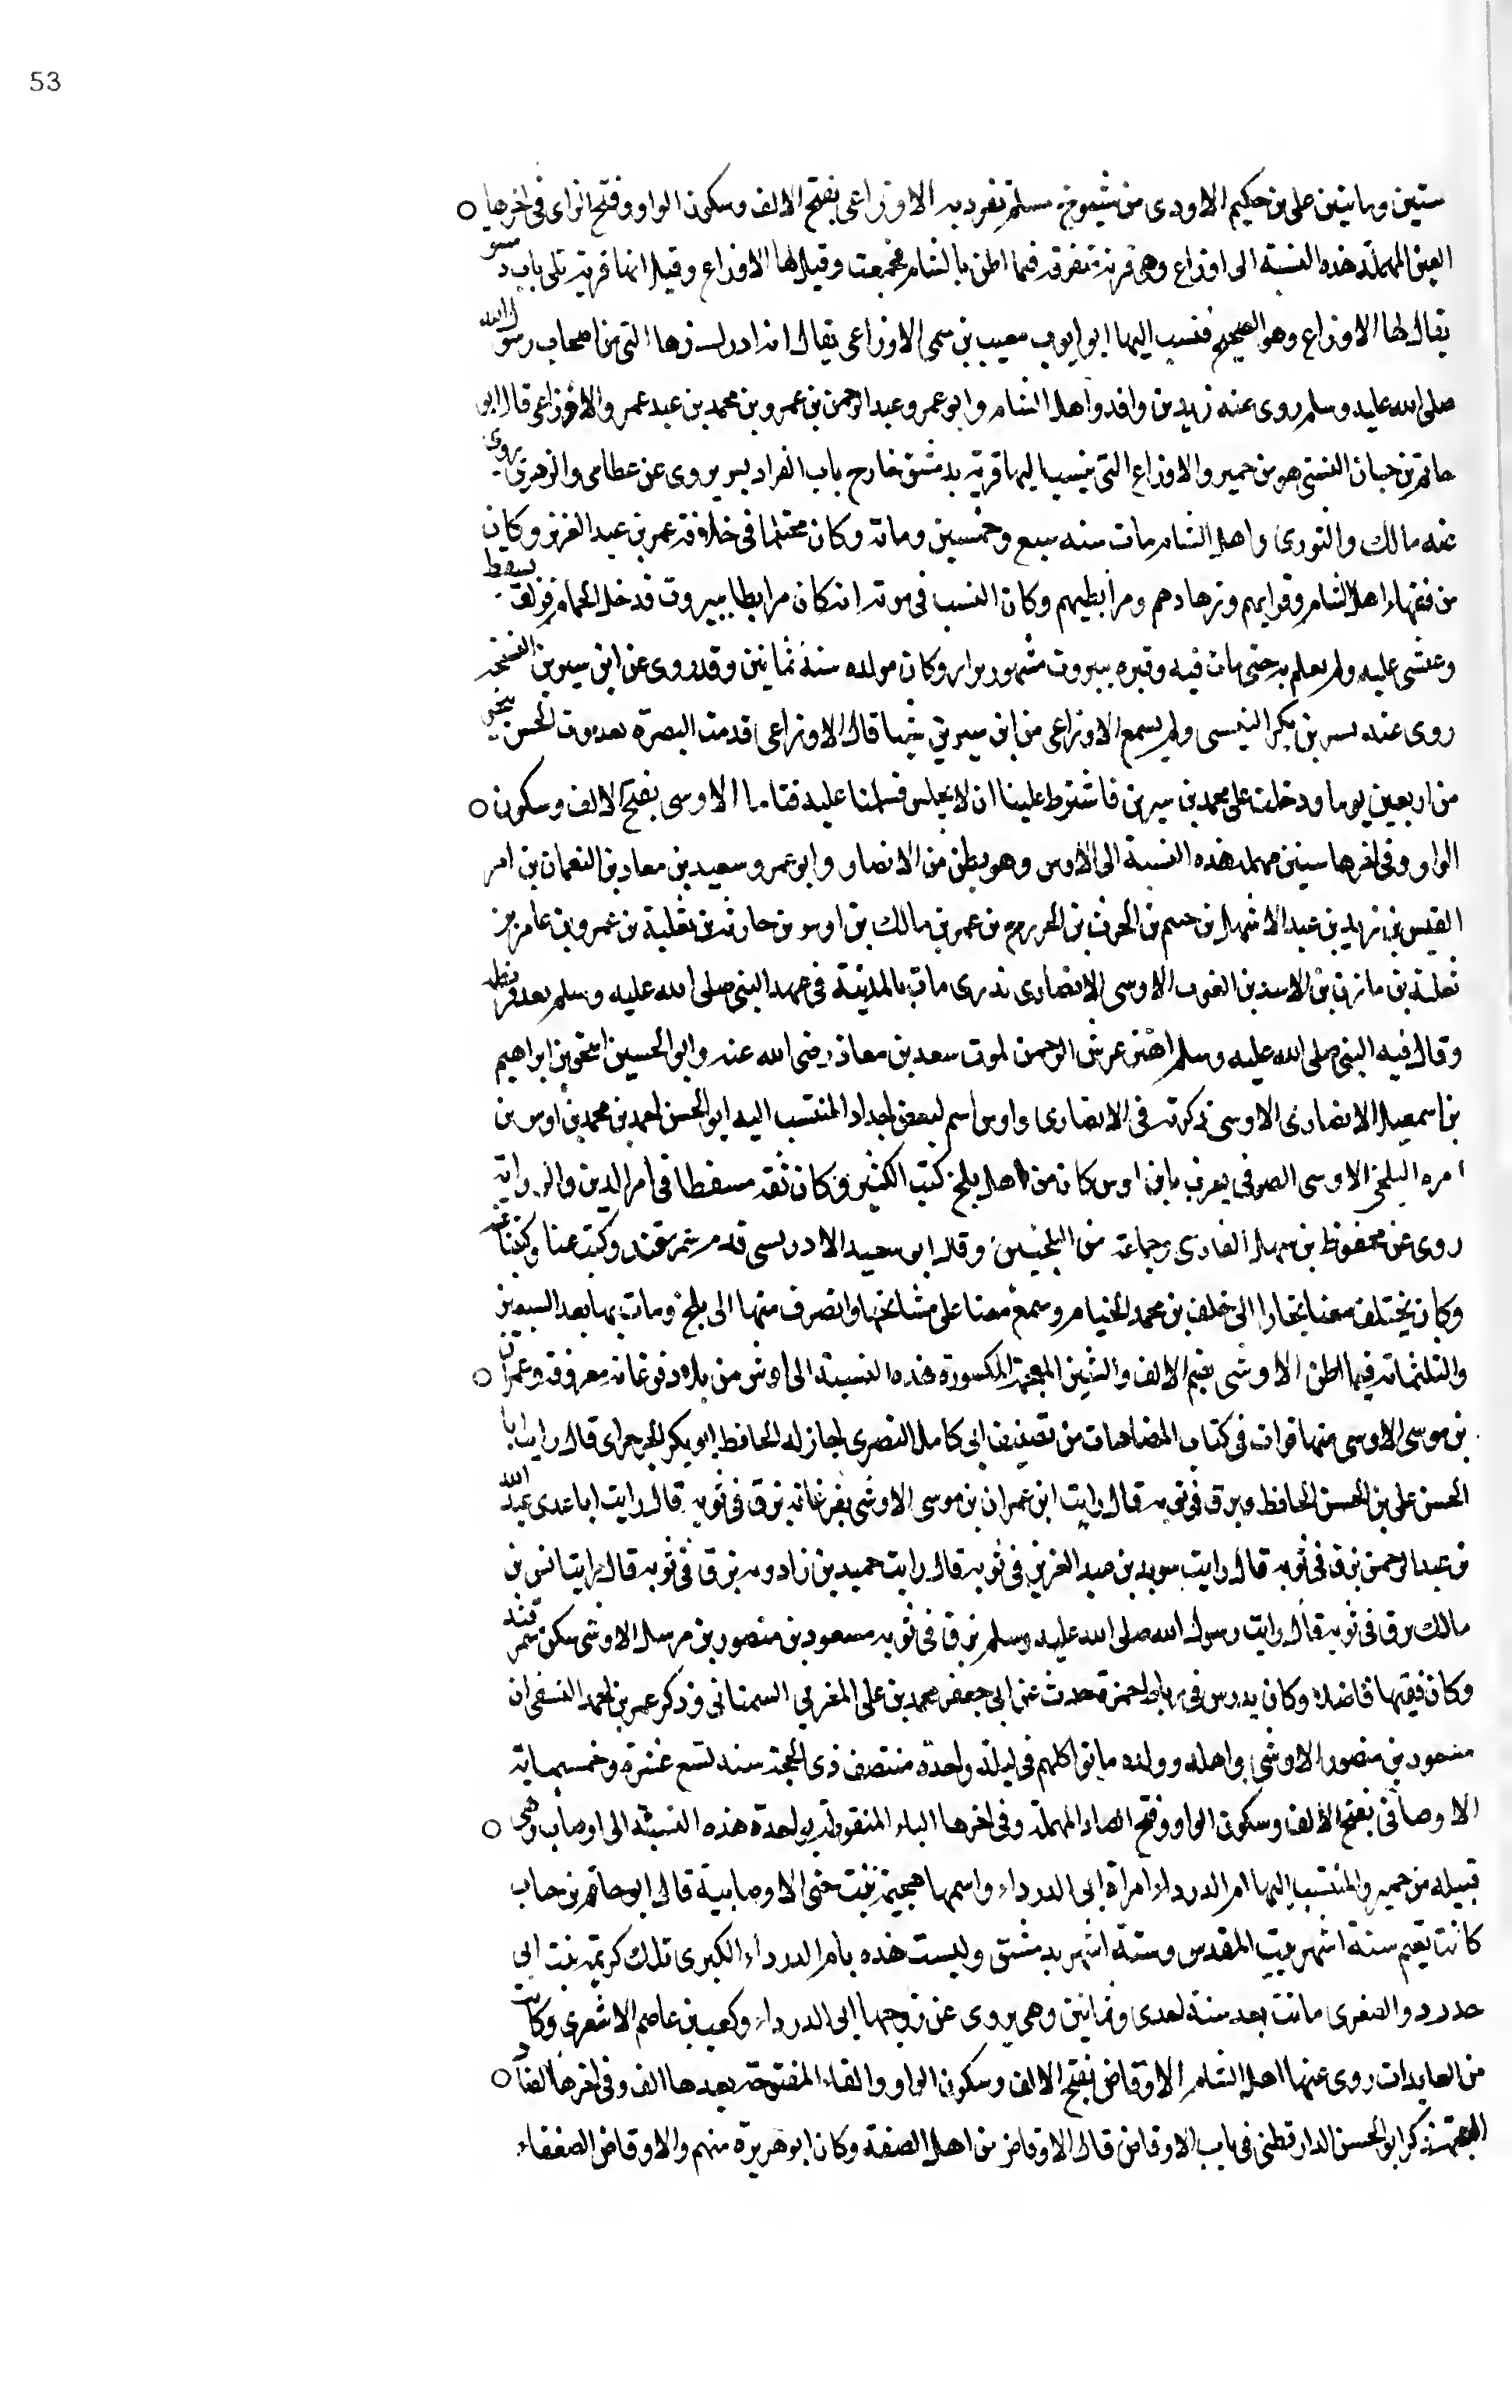 53
ستين ومايتين على بن حكيم الاودى من شيوخ مسلم تفرد به الاوزاعى بفتح الالف وسكون الواو وفتح الزاى فى اخرها
العين المهملة هذه النسبة الى اوزاع وهى قرية متفرقة فيما اظن بالشام فجمعت وقيل لها الاوزاع وقيل انها قرية تلى باب
يقال لها الاوزاع وهو الصحيح فنسب اليها ابو ايوب مغيب بن سمى الاوزاعى يقال انه ادرك زها الف من اصحاب رسول الله
صلى الله عليه وسلم روى عنه زيد بن واقد واهل الشام وابو عمرو عبد الرحمن بن عمرو بن محمد بن عبد عمرو الاوزاعى قال ابو
حاتم بن حبان البستى هو من حمير والاوزاع التى ينسب اليها قرية بدمشق خارج باب الفراديس يروى عن عطاء والزهرى روى
عنه مالك والثورى واهل الشام مات سنه سبع وخمسين وماته وكان محتلما فى خلافة عمر بن عبد العزيز وكان
من فقهاء اهل الشام وقرايهم وزهادهم ومرابطيهم وكان السبب فى موته انه كان مرابطا ببيروت فدخل الحمام فزلق فسقط
وغشى عليه ولم يعلم به حتى مات فيه وقبره ببيروت مشهور يزار وكان مولده سنة ثمانين وقد روى عن ابن سيرين
روى عنه بسر بن بكر التنيسى ولم يسمع الاوزاعى من ابن سيرين شيا قال الاوزاعى قدمت البصرة بعد موت الحسن بنحو
من اربعين يوما ودخلت على محمد بن سيرين فاشترط علينا ان لا يجلس فسلمنا عليه قياما الاوسى بفتح الالف وسكون
الواو وفى اخرها سين مهملة هذه النسبة الى الاوس وهو بطن من الانصار وابو عمرو سعيد بن معاد بن النعمان بن امر
القيس بن زيد بن عبد الاشهل بن جسم بن الحرث بن الخزرج بن عمر بن مالك بن اوس بن حارثة بن ثعلبة بن عمرو بن عامر بن
ثعلبة بن مازن بن الاسد بن الغوث الاوسى الانصارى بدرى مات بالمدينة فى عهد النبى صلى الله عليه وسلم بعد قريظه
وقال فيه النبى صلى الله عليه وسلم اهتز عرش الرحمن لموت سعد بن معاذ رضى الله عنه وابو الحسين اسحق بن ابراهيم
بن اسمعيل الانصارى الاوسى ذكرته فى الانصارى واوس اسم لبعض اجداد المنتسب اليه ابو الحسن احمد بن محمد بن اوس بن
امره البلخى الاوسى الصوفى يعرف بابن اوس كان من اهل بلخ كتب الكثير وكان ثقة مسقطا فى امر الدين والرواية
روى عن محفوظ بن سهل الفادى وجماعة من البلخيين وقال ابو سعيد الادريسى قدم سمرقند وكتب عنا وكتبنا عنه
وكان يختلف معنا بخارا الى خلف بن محمد الخيام وسمع معنا على مشائخها وانصرف منها الى بلخ ومات بها بعد السبعين
والثلثماته فيما اظن الاوشى بضم الالف والشين المعجمة المكسورة هذه النسبة الى اوش من بلاد فرغانه معروفة وعمران
بن موسى الاوسى منها قرات فى كتاب المضاهات من تصنيف ابى كامل النصرى اجاز له الحافظ ابو بكر الجرجراى قال رايت ابا
الحسن على بن الحسن الحافظ وبزق فى ثوبه قال رايت ابن عمران بن موسى الاوشى بفرغانه بزق فى ثوبه قال رايت ابا عدى عبد الله
بن عبد الرحمن بزق فى ثوبه قال رايت سويد بن عبد العزيز فى ثوبه قال رايت حميد بن زادويه بزق فى ثوبه قال رايت انس بن
مالك بزق فى ثوبه قال رايت رسول الله صلى الله عليه وسلم بزق فى ثوبه مسعود بن منصور بن مرسل الاوشى سكن سمرقند
وكان فقيها فاضلا وكان يدرس فى رباط احمزة حدث عن ابى جعفر محمد بن على المغربى السمنانى وذكر عمر بن احمد النسفى ان
مسعود بن منصور الاوشى واهله وولده ماتوا كلهم فى ليلة واحدة منتصف ذى الحجة سنه تسع عشرة وخمسمايه
الاوصابى بفتح الالف وسكون الواو وفتح الصاد المهملة وفى اخرها الباء المنقوطة بواحدة هذه النسبة الى اوصاب وهى
قبيله من حمير والمنتسب اليها ام الدرداء امراة ابى الدرداء واسمها هجيمة بنت حيى الاوصابية قال ابو حاتم بن حبان
كانت تقيم ستة اشهر ببيت المقدس وستة اشهر بدمشق وليست هذه بام الدرداء الكبرى تلك كريمة بنت ابى
حدرد والصغرى ماتت بعد سنة احدى وثمانين وهى يروى عن زوجها ابى الدرداء وكعب بن عاصم الاشعرى وكانت
من العابدات روى عنها اهل الشام الاوفاض بفتح الالف وسكون الواو والفاء المفتوحة بعدها الف وفى اخرها الضاد
المعجمة ذكر ابو الحسن الدارقطنى فى باب الاوفاض قال الاوفاض من اهل الصفة وكان ابو هريرة منهم والاوفاض الضعفاء